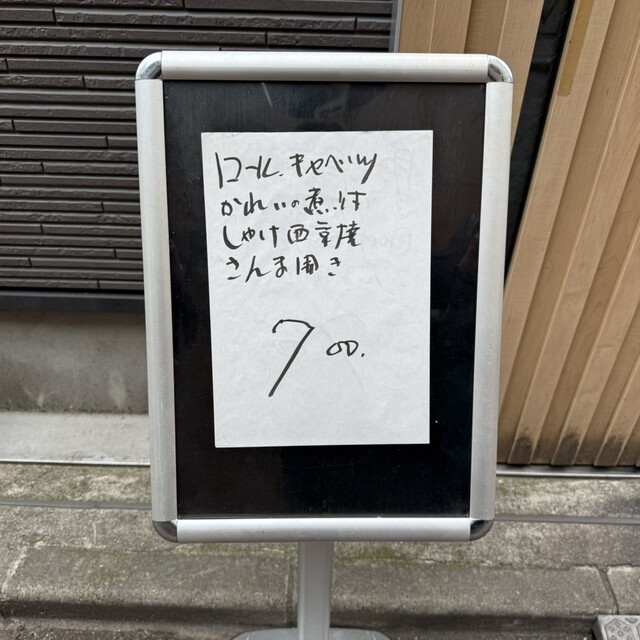 ロール.キャベツ
かれいの煮.付
しゃけ西京焼
さんま開き
700.